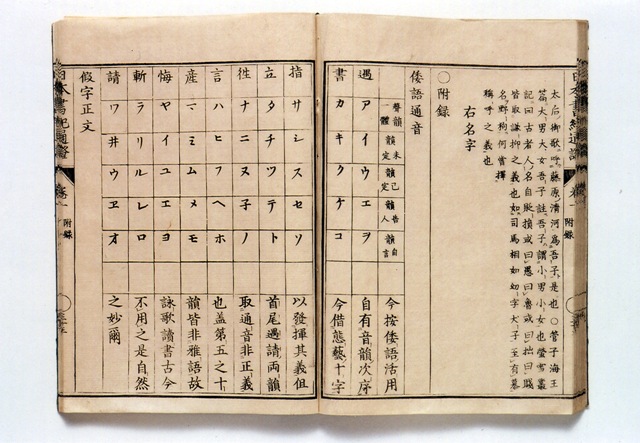 太后御歌呼藤原清河爲吾子是也○管子海王
篇大男大女吾子註吾子謂小男小女也螢雪叢
記曰古者人名自貶損或曰愚曰魯或曰拙曰賤
皆取謙抑之義也如司馬相如幼字犬子至有慕
名野狗何嘗擇
稱呼之義也
右名字
○附録
倭語通音
聲韻一體 韻未定 韻已定 韻告人 韻自言 今按倭語活用
遇 ア イ ウ エ ヲ 自有音韻次序
書 カ キ ク ケ コ 今借態藝十字
日本書紀通證 卷一 附録
指 サ シ ス セ ソ 以發揮其義但
立 タ チ ツ テ ト 首尾遇請兩韻
徃 ナ ニ ヌ 子 ノ 取通音非正義
言 ハ ヒ フ ヘ ホ 也蓋第五之十
産 マ ミ ム メ モ 韻皆非雅語故
悔 ヤ イ ユ エ ヨ 詠歌讀書古今
斬 ラ リ ル レ ロ 不用之是自然
請 ワ 井 ウ ヱ オ 之妙爾
假字正文
日本書紀通證 卷一 附録